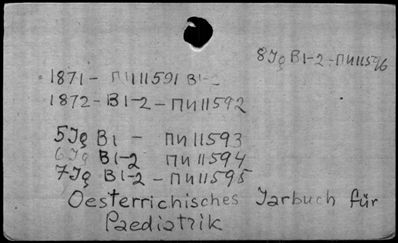 8Jg B1-2-ПИ11596
1871 - ПИ11591 B1-2
1872 - B1-2 - ПИ11592
5Jg B1 - ПИ11593
6Jg B1-2 ПИ11594
7Jg B1-2 - ПИ11595
Oesterrichisches Jarbuch für
Paediatrik